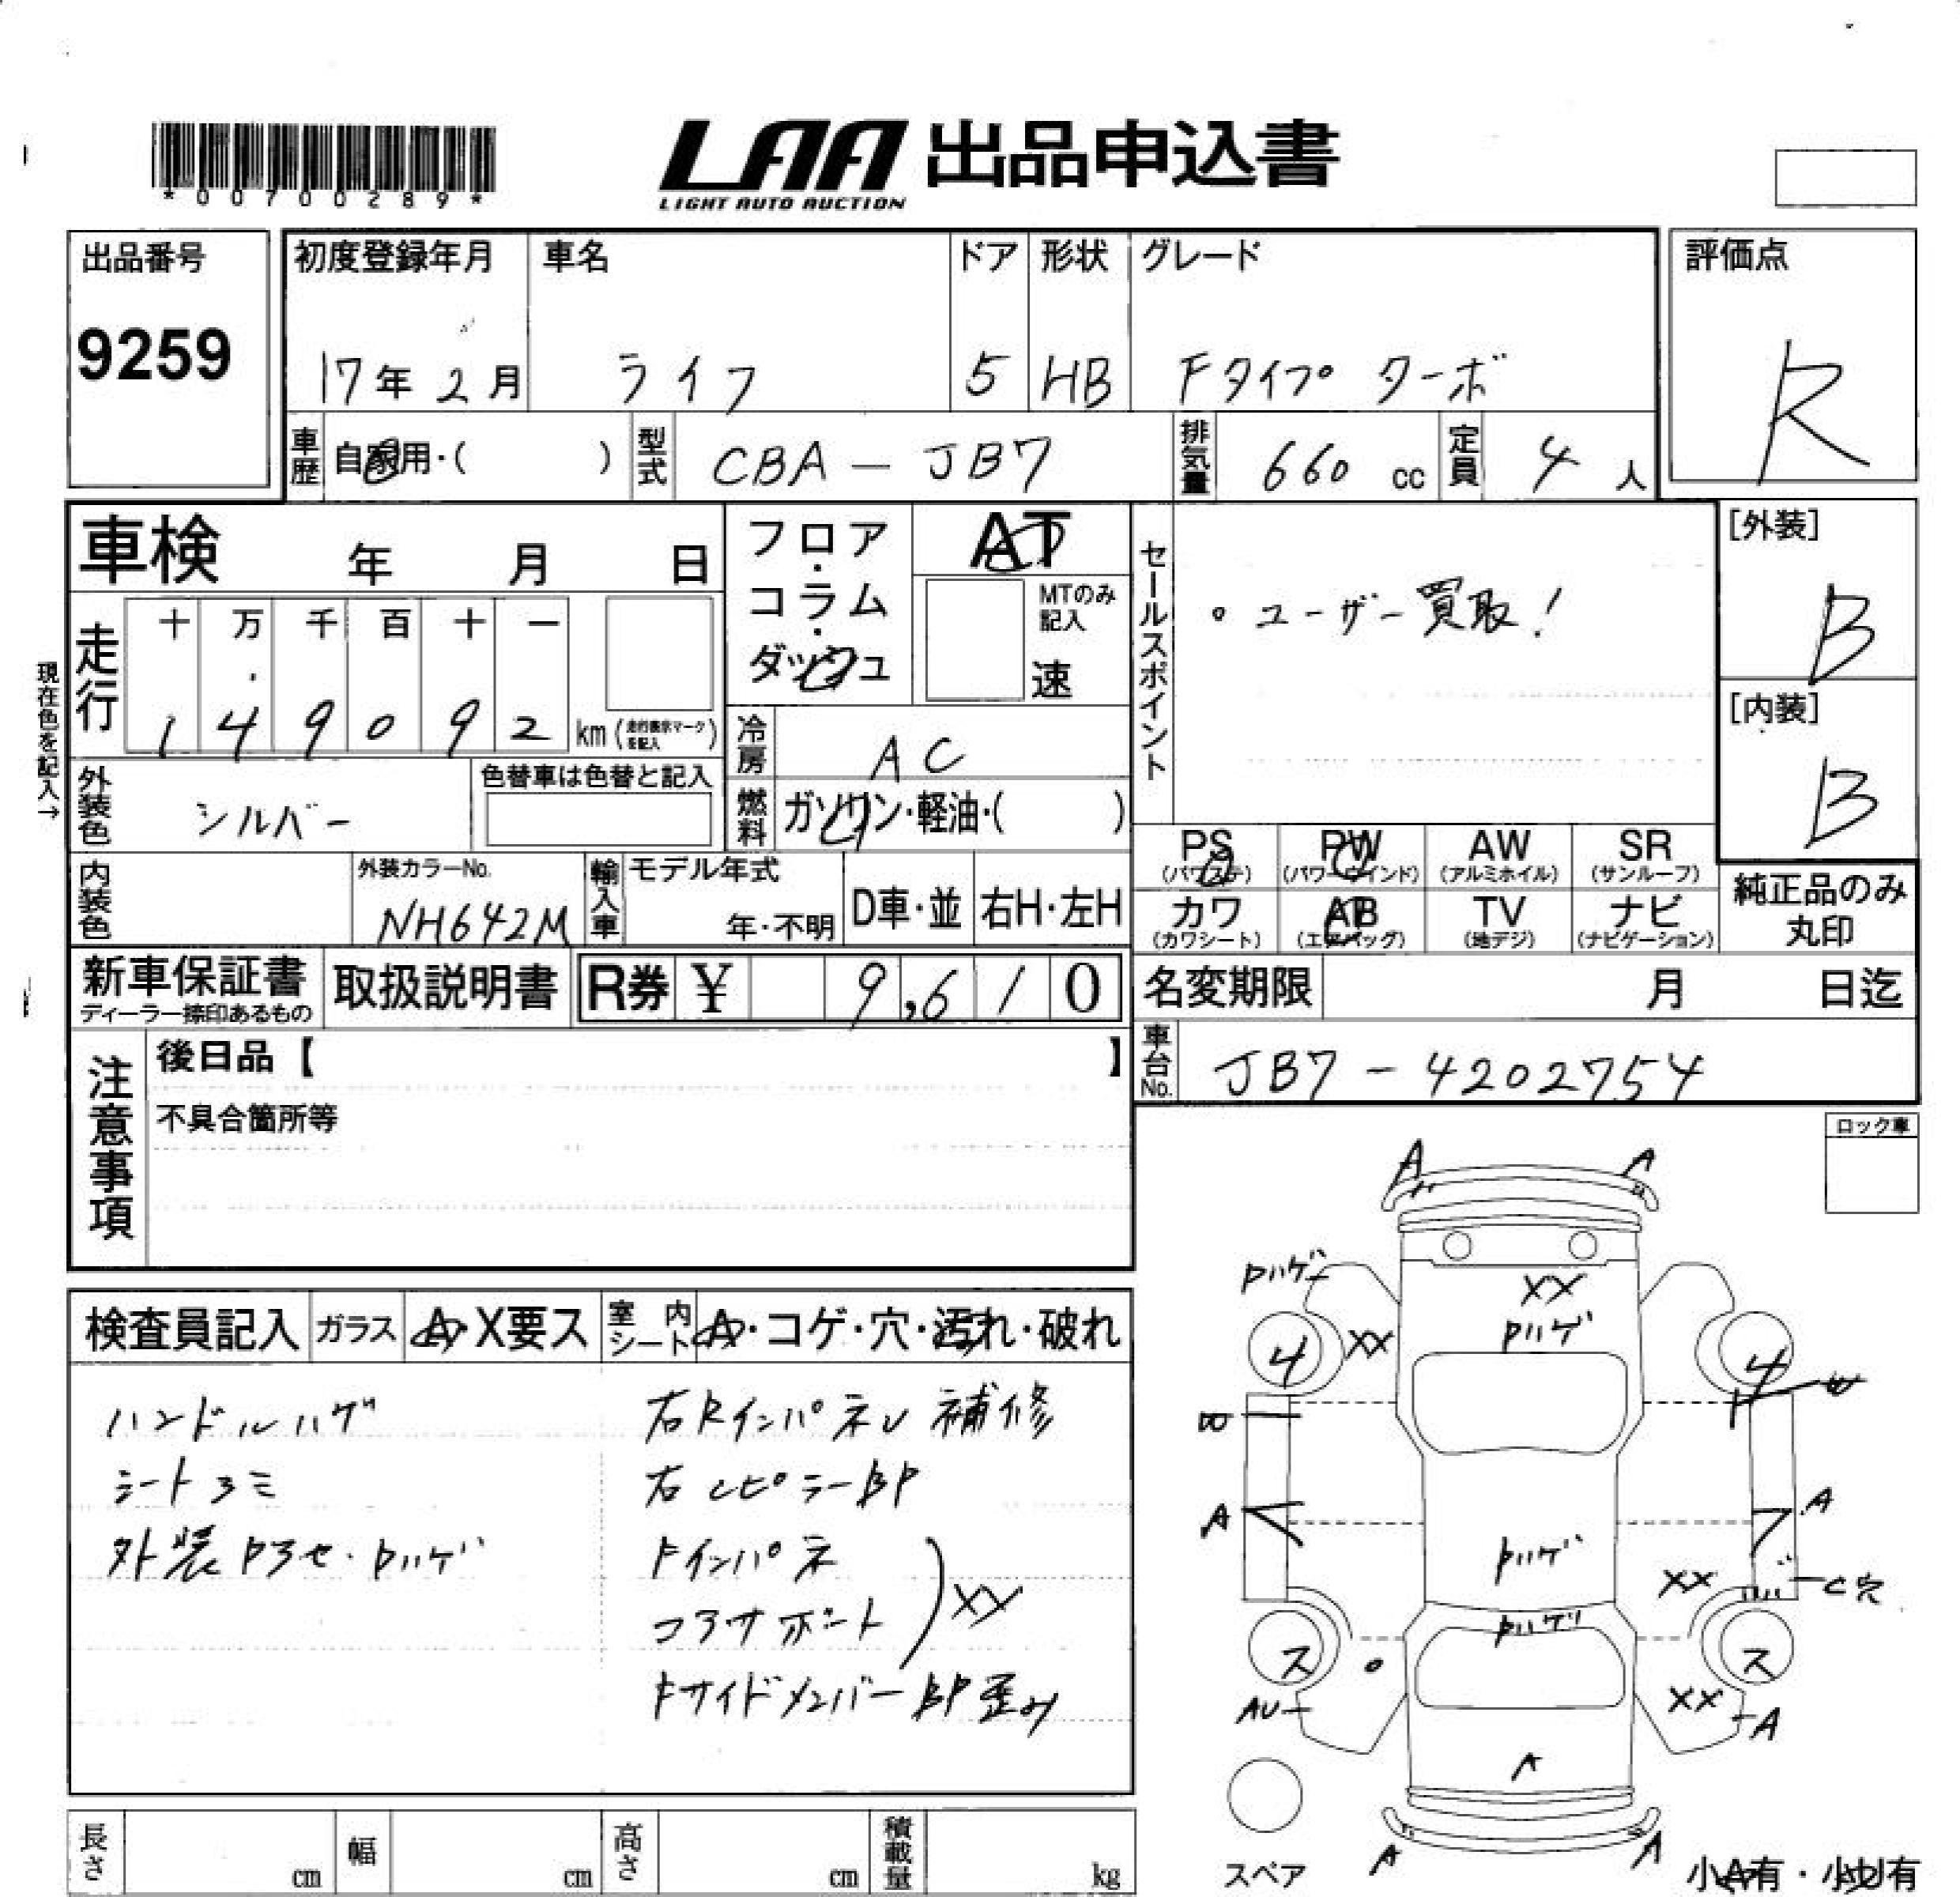 *00700289*
LAA 出品申込書
LIGHT AUTO AUCTION
出品番号
9259
初度登録年月
17年 2月
車名
ライフ
ドア
5
形状
HB
グレード
Fタイプ ターボ
評価点
R
車歴
自家用・( )
型式
CBA-JB7
排気量
660 cc
定員
4 人
車検 年 月 日
フロア・コラム・ダッシュ
AT
MTのみ記入
速
セールスポイント
・ユーザー買取!
[外装]
B
[内装]
B
現在色を記入→
走行
十 万 千 百 十 一
1 4 9 0 9 2 km (走行表示マークを記入)
冷房
AC
外装色
シルバー
色替車は色替と記入
燃料
ガソリン・軽油・( )
PS (パワステ)
PW (パワーウインド)
AW (アルミホイル)
SR (サンルーフ)
カワ (カワシート)
AB (エアバッグ)
TV (地デジ)
ナビ (ナビゲーション)
純正品のみ丸印
内装色
外装カラーNo.
NH642M
輸入車
モデル年式
年・不明
D車・並
右H・左H
新車保証書
ディーラー捺印あるもの
取扱説明書
R券 ¥ 9,610
名変期限 月 日迄
車台No.
JB7-4202754
注意事項
後日品【 】
不具合箇所等
ロック車
検査員記入
ガラス
A・X要ス
室内シート
A・コゲ・穴・汚れ・破れ
ハンドルハゲ
シートヨミ
外装 Pヤセ・Pハゲ
右Rインパネル 補修
右Cピラー BP
Fインパネ
コアサポート
XX
Fサイドメンバー BP 歪み
A A
Pハゲ
XX
Pハゲ
XX
4 4
A
A
Pハゲ
XX
C穴
Pハゲ
ス ス
AU
XX
A
A
A A
スペア
小A有・小U有
長さ cm
幅 cm
高さ cm
積載量 kg